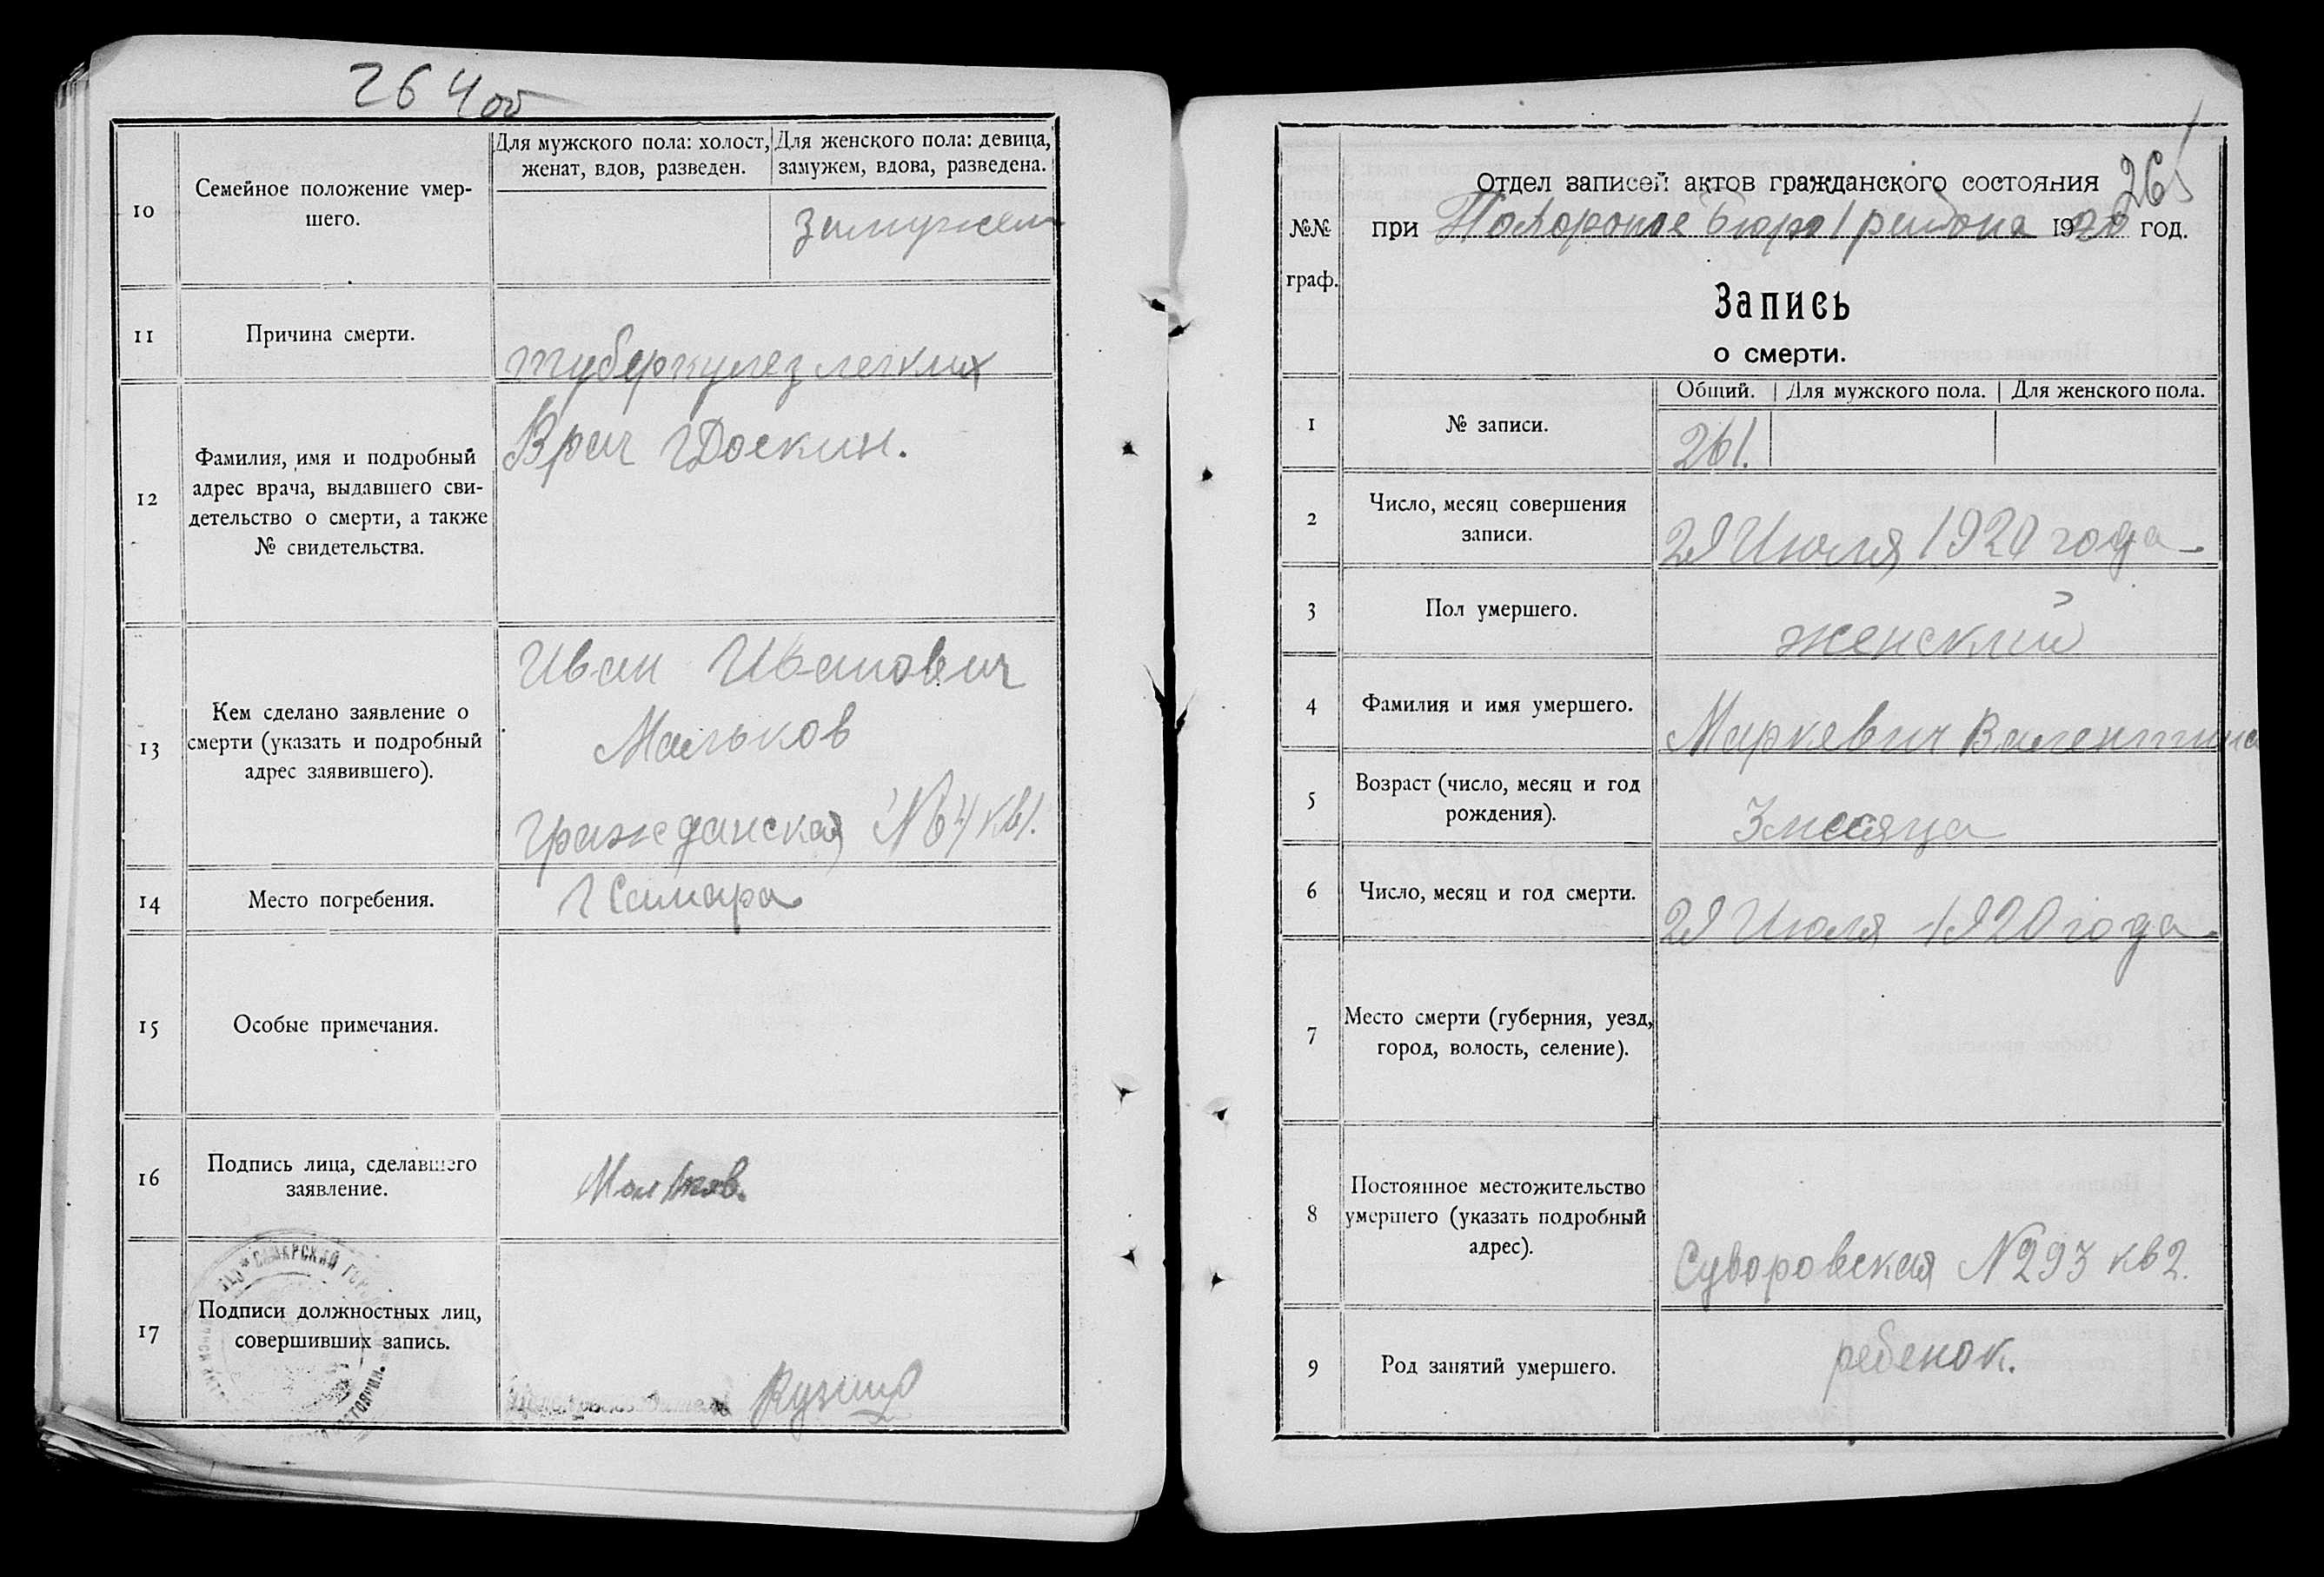 264об
10
Семейное положение умер-
шего.
Для мужского пола: холост,
женат, вдов, разведен.
Для женского пола: девица,
замужем, вдова, разведена.
замужем
11
Причина смерти.
туберкулез легких
12
Фамилия, имя и подробный
адрес врача, выдавшего сви-
детельство о смерти, а также
№ свидетельства.
Врач
13
Кем сделано заявление о
смерти (указать и подробный
адрес заявившего).
Иван Иванович
Мальков
Гражданская № 4 кв 1.
14
Место погребения.
г Самара
15
Особые примечания.
16
Подпись лица, сделавшего
заявление.
Мальков.
17
Подписи должностных лиц,
совершивших запись.
265
№№
граф.
Отдел записей актов гражданского состояния
при Похороное бюро 1 района 1920 год.
Запись
о смерти.
1
№ записи.
Общий.
Для мужского пола.
Для женского пола.
261.
2
Число, месяц совершения
записи.
29 Июля 1920 года
3
Пол умершего.
женский
4
Фамилия и имя умершего.
Маркевич Валентина
5
Возраст (число, месяц и год
рождения).
3 месяца
6
Число, месяц и год смерти.
29 Июля 1920 года.
7
Место смерти (губерния, уезд,
город, волость, селение).
8
Постоянное местожительство
умершего (указать подробный
адрес).
Суворовская № 293 кв 2.
9
Род занятий умершего.
ребенок.